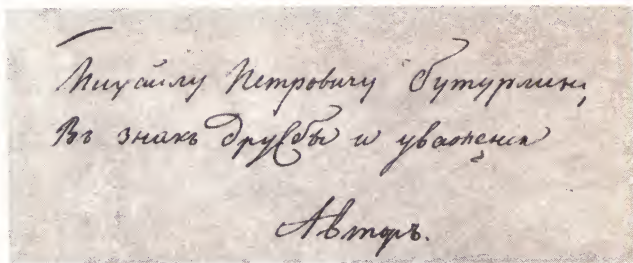 Михаилу Петровичу Бутурлину
Въ знакъ дружбы и уваженія
Авторъ.